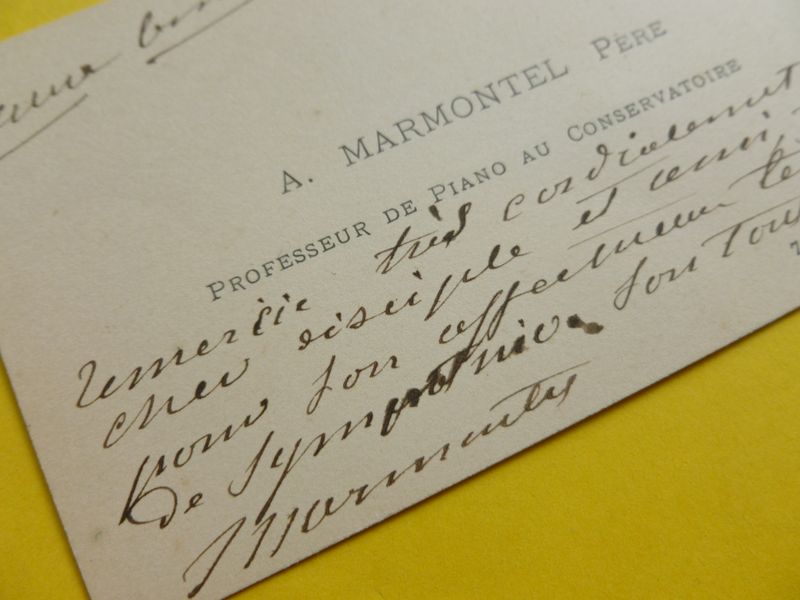 A. MARMONTEL PÈRE
PROFESSEUR DE PIANO AU CONSERVATOIRE
remercie très cordialement
cher disciple et ami,
pour son affectueux te
de sympathie. Son tout
Marmontel